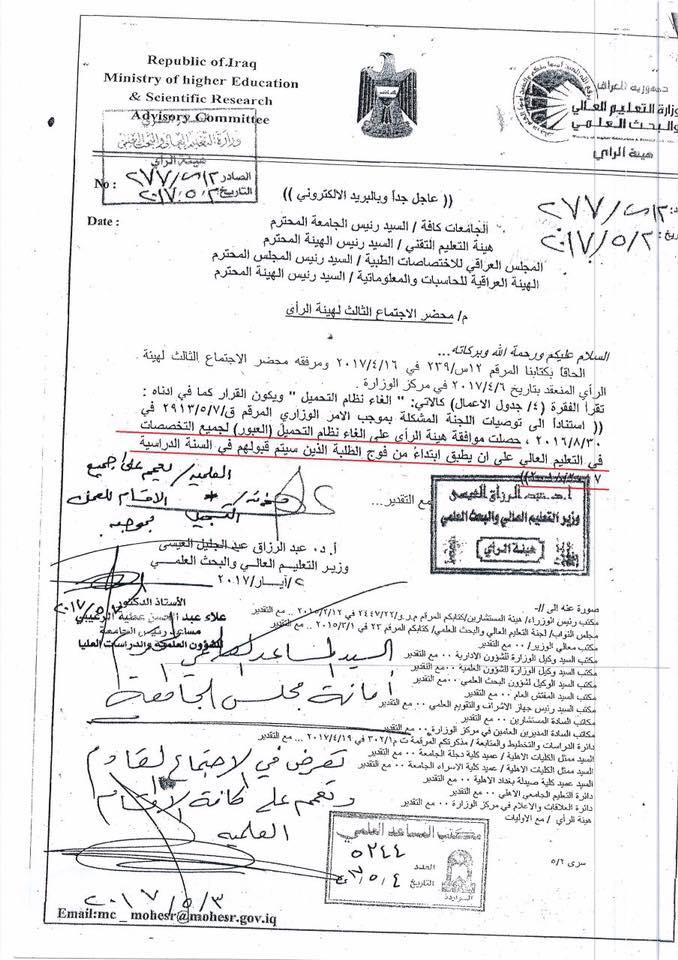 Republic of Iraq
Ministry of higher Education
& Scientific Research
Advisory Committee
جمهورية العراق
وزارة التعليم العالي
والبحث العلمي
هيئة الراي
هيئة الراي
No :
الصادر
التاريخ
٢٠١٧/٥/٢
(( عاجل جداً وبالبريد الالكتروني ))
Date :
٢٠١٧/٥/٢
الجامعات كافة / السيد رئيس الجامعة المحترم
هيئة التعليم التقني / السيد رئيس الهيئة المحترم
المجلس العراقي للاختصاصات الطبية / السيد رئيس المجلس المحترم
الهيئة العراقية للحاسبات والمعلوماتية / السيد رئيس الهيئة المحترم
م/ محضر الاجتماع الثالث لهيئة الرأي
السلام عليكم ورحمة الله وبركاته...
الحاقاً بكتابنا المرقم ١٢س/٢٣٩ في ٢٠١٧/٤/١٦ ومرفقه محضر الاجتماع الثالث لهيئة
الرأي المنعقد بتاريخ ٢٠١٧/٤/٦ في مركز الوزارة .
تقرأ الفقرة (٤/ جدول الاعمال) كالاتي: " الغاء نظام التحميل " ويكون القرار كما في ادناه :
(( استناداً الى توصيات اللجنة المشكلة بموجب الامر الوزاري المرقم ق/٢٩١٣/٥/٧ في
٢٠١٦/٨/٣٠ ، حصلت موافقة هيئة الرأي على الغاء نظام التحميل (العبور) لجميع التخصصات
في التعليم العالي على ان يطبق ابتداءً من فوج الطلبة الذين سيتم قبولهم في السنة الدراسية
العلمية / تعمم على جميع
الاقسام للعمل
بموجبه
التسجيل
مع التقدير...
أ.د. عبد الرزاق العيسى
وزير التعليم العالي والبحث العلمي
هيئة الرأي
أ.د. عبد الرزاق عبد الجليل العيسى
وزير التعليم العالي والبحث العلمي
٢/أيار/٢٠١٧
الأستاذ الدكتور
علاء عبد الحسن عطية
مساعد رئيس الجامعة
للشؤون العلمية والدراسات العليا
صورة عنه الى //-
مكتب رئيس الوزراء/ هيئة المستشارين/ كتابكم المرقم م.ر.و/٢٢/٢٤٤٧ في ٢٠١٥/٢/١٢ .. مع التقدير
مجلس النواب/ لجنة التعليم العالي والبحث العلمي/ كتابكم المرقم ٢٣ في ٢٠١٥/٣/١ .. مع التقدير
مكتب معالي الوزير/ ٠٠ مع التقدير
مكتب السيد وكيل الوزارة للشؤون الادارية ٠٠ مع التقدير
مكتب السيد وكيل الوزارة للشؤون العلمية ٠٠ مع التقدير
مكتب السيد الوكيل لشؤون البحث العلمي ٠٠ مع التقدير
مكتب السيد المفتش العام ٠٠ مع التقدير
مكتب السيد رئيس جهاز الاشراف والتقويم العلمي ٠٠ مع التقدير
مكاتب السادة المستشارين ٠٠ مع التقدير
مكاتب السادة المديرين العامين في مركز الوزارة ٠٠ مع التقدير
دائرة الدراسات والتخطيط والمتابعة / مذكرتكم المرقمة ت م ٣٠٢/١ في ٢٠١٧/٤/١٩ ... مع التقدير
السيد ممثل الكليات الاهلية / عميد كلية دجلة الجامعة ٠٠ مع التقدير
السيد ممثل الكليات الاهلية / عميد كلية الاسراء الجامعة ٠٠ مع التقدير
السيد عميد كلية صيدلة بغداد الاهلية ٠٠ مع التقدير
دائرة التعليم الجامعي الاهلي ٠٠ مع التقدير
دائرة العلاقات والاعلام في مركز الوزارة ٠٠ مع التقدير
هيئة الرأي / مع الاوليات
السيد المساعد العلمي
أمانة مجلس الجامعة
تعرض في الاجتماع القادم
وتعمم على كافة الاقسام
العلمية
٢٠١٧/٥/٣
مكتب المساعد العلمي
العدد ٥٢٤٤
التاريخ
الواردة
سرى ٥/٢
Email:mc _ mohesr@mohesr.gov.iq